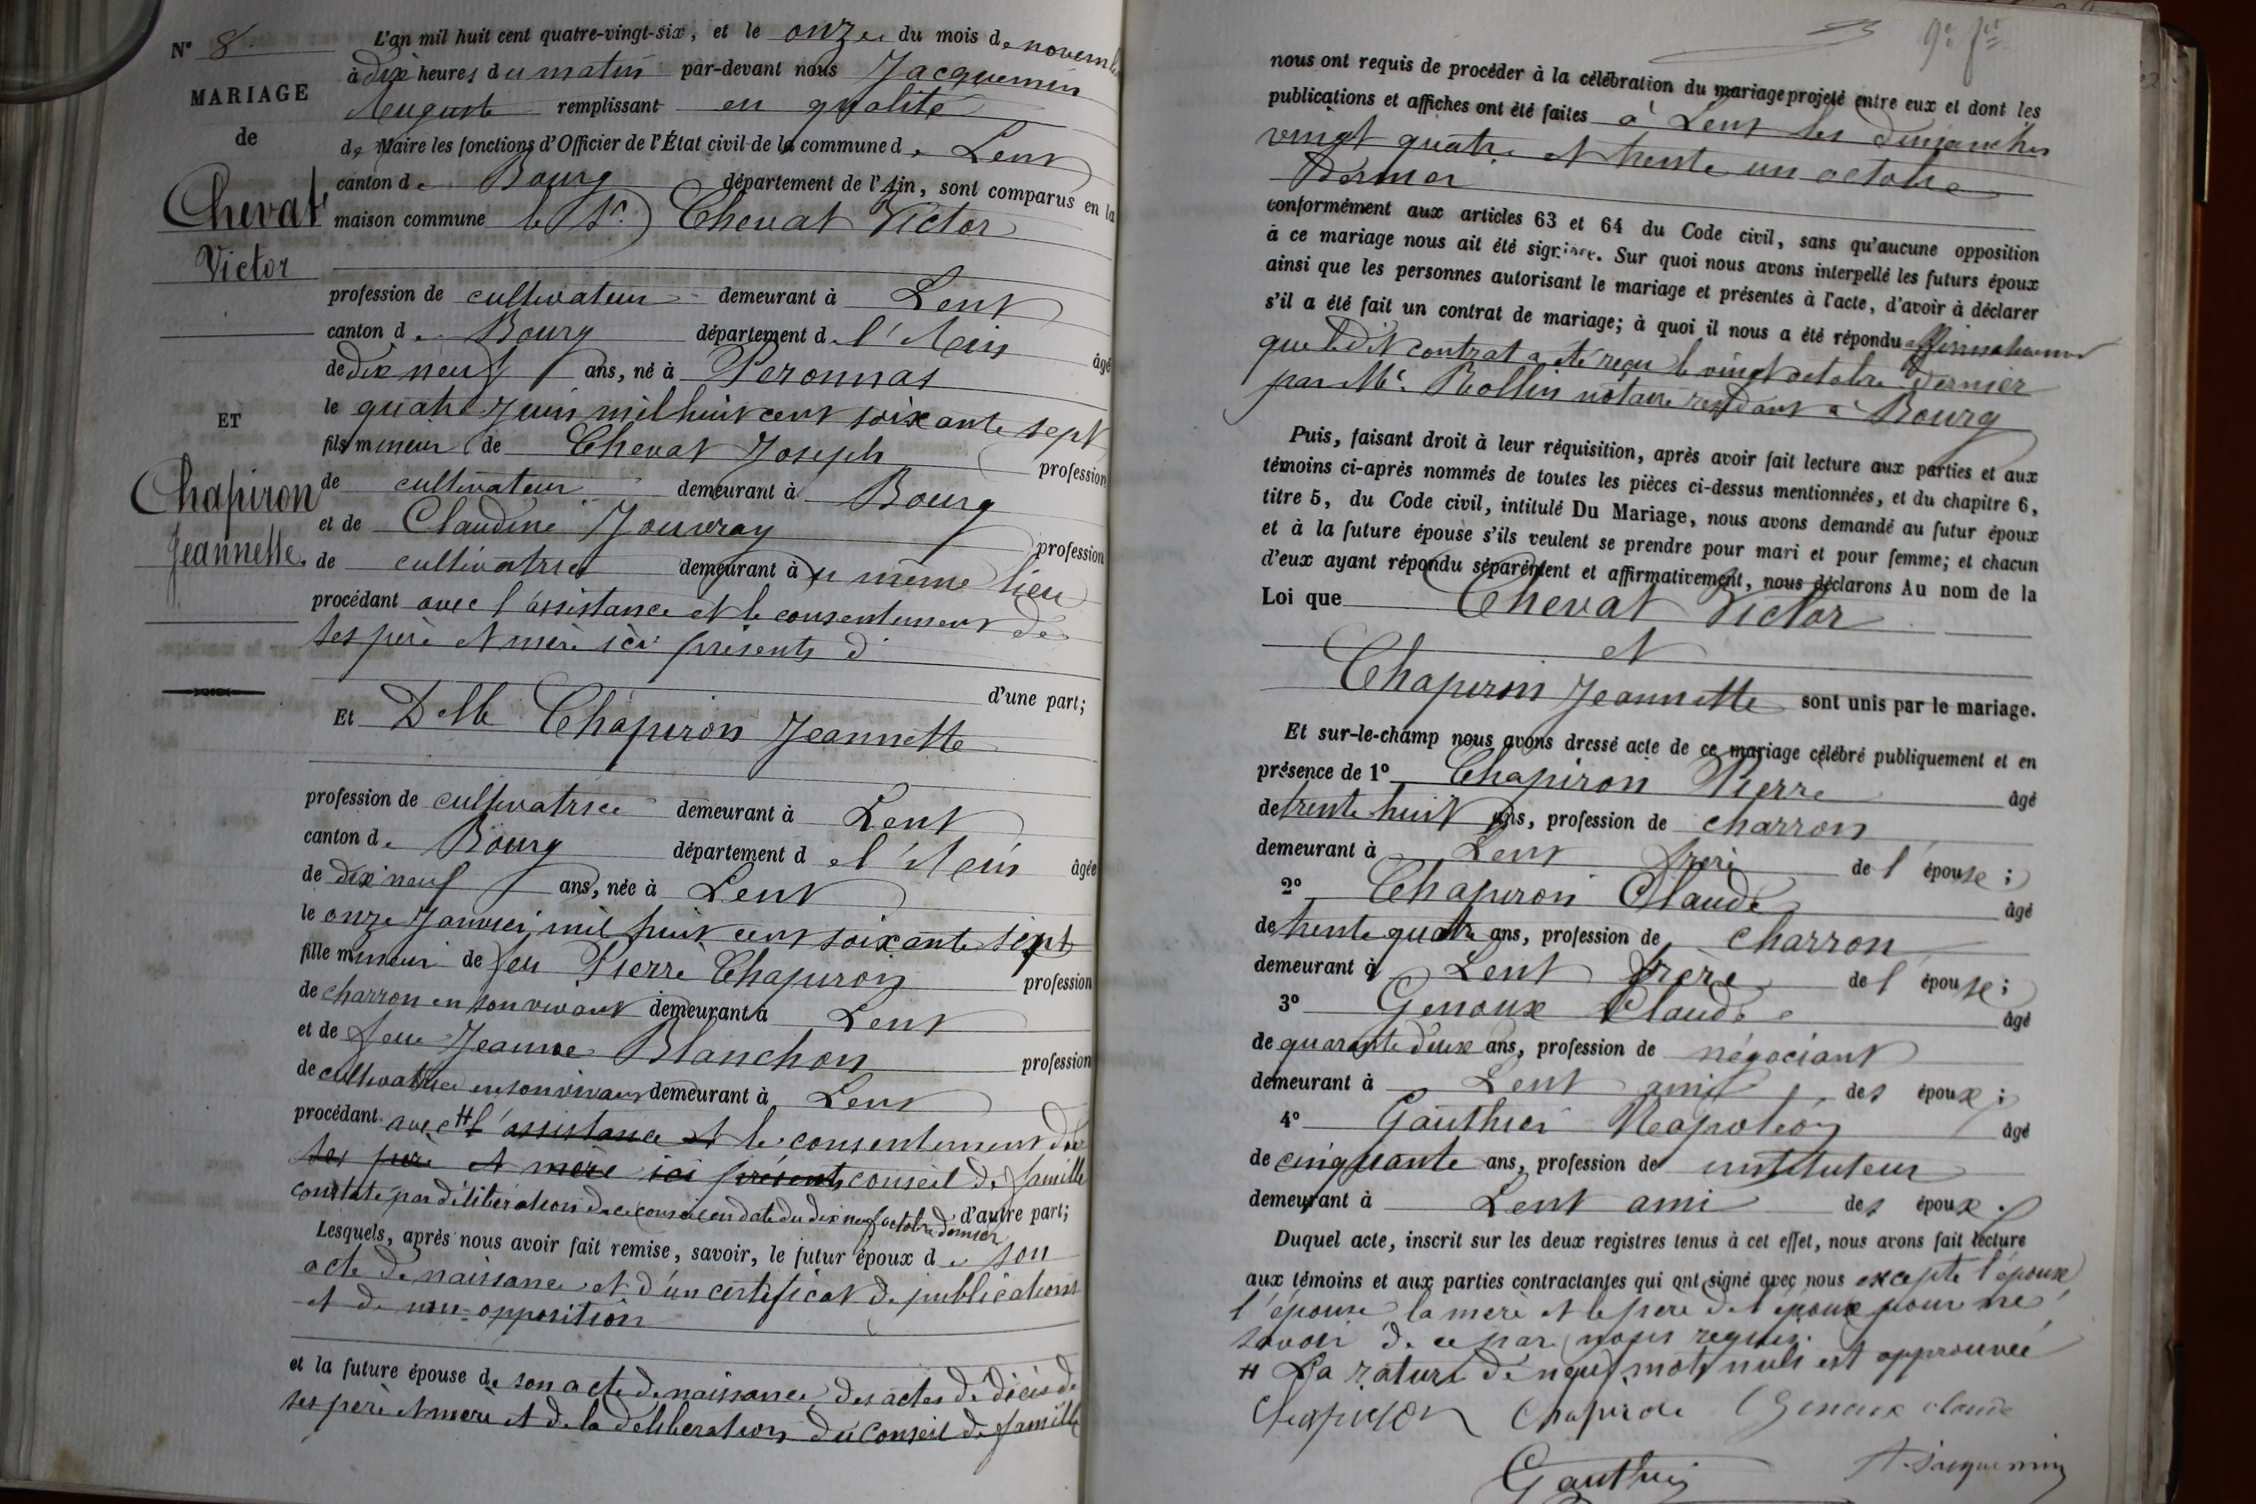 N° 8
MARIAGE
de
Chevat
Victor
ET
Chapiron
Jeannette.
L'an mil huit cent quatre-vingt-six, et le onze du mois de novembre
à dix heures du matin par-devant nous Jacquemin
Auguste remplissant en qualité
de Maire les fonctions d'Officier de l'État civil de la commune de Lent
canton de Bourg département de l'Ain, sont comparus en la
maison commune le Sr. Chevat Victor
profession de cultivateur demeurant à Lent
canton de Bourg département de l'Ain âgé
de dix neuf ans, né à Peronnas
le quatre Juin mil huit cent soixante sept
fils mineur de Chevat Joseph profession
de cultivateur demeurant à Bourg
et de Claudine Jouvray profession
de cultivatrice demeurant à u même lieu
procédant avec l'assistance et le consentement de
ses père et mère ici présents d
d'une part;
Et Delle Chapiron Jeannette
profession de cultivatrice demeurant à Lent
canton de Bourg département de l'Ain âgée
de dix neuf ans, née à Lent
le onze Janvier mil huit cent soixante sept
fille mineur de feu Pierre Chapiron profession
de charron en son vivant demeurant à Lent
et de feue Jeanne Blanchon profession
de cultivatrice en son vivant demeurant à Lent
procédant avec H l'assistance et le consentement du
ses père et mère ici présents conseil de famille
constaté par délibération de ce conseil en date du dix neuf octobre dernier d'autre part;
Lesquels, après nous avoir fait remise, savoir, le futur époux de son
acte de naissance et d'un certificat de publications
et de non-opposition
et la future épouse de son acte de naissance, des actes de décès de
ses père et mère et de la délibération du conseil de famille
9e ft
nous ont requis de procéder à la célébration du mariage projeté entre eux et dont les
publications et affiches ont été faites à Lent les dimanches
vingt quatre et trente un octobre
dernier
conformément aux articles 63 et 64 du Code civil, sans qu'aucune opposition
à ce mariage nous ait été signifiée. Sur quoi nous avons interpellé les futurs époux
ainsi que les personnes autorisant le mariage et présentes à l'acte, d'avoir à déclarer
s'il a été fait un contrat de mariage; à quoi il nous a été répondu affirmativement
que ledit contrat a été reçu le vingt octobre dernier
par Me. Rollin notaire résidant à Bourg
Puis, faisant droit à leur réquisition, après avoir fait lecture aux parties et aux
témoins ci-après nommés de toutes les pièces ci-dessus mentionnées, et du chapitre 6,
titre 5, du Code civil, intitulé Du Mariage, nous avons demandé au futur époux
et à la future épouse s'ils veulent se prendre pour mari et pour femme; et chacun
d'eux ayant répondu séparément et affirmativement, nous déclarons Au nom de la
Loi que Chevat Victor
et
Chapiron Jeannette sont unis par le mariage.
Et sur-le-champ nous avons dressé acte de ce mariage célébré publiquement et en
présence de 1° Chapiron Pierre âgé
de trente huit ans, profession de charron
demeurant à Lent frère de l'épouse;
2° Chapiron Claude âgé
de trente quatre ans, profession de charron
demeurant à Lent frère de l'épouse;
3° Genoux Claude âgé
de quarante deux ans, profession de négociant
demeurant à Lent ami des époux;
4° Gauthier Napoléon âgé
de cinquante ans, profession de instituteur
demeurant à Lent ami des époux.
Duquel acte, inscrit sur les deux registres tenus à cet effet, nous avons fait lecture
aux témoins et aux parties contractantes qui ont signé avec nous excepté l'époux
l'épouse la mère et le père de l'époux pour ne
savoir de ce par nous requis.
H La rature de neuf mots nuls est approuvée
Chapiron Chapiron Genoux claude
Gauthier A. Jacquemin